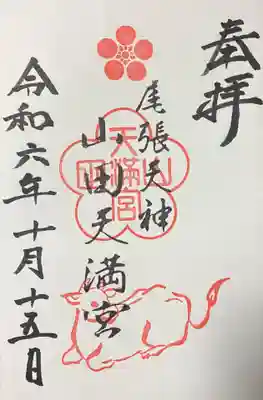 奉拝
尾張天神
山田天満宮
令和六年十月十五日
山田
天満宮